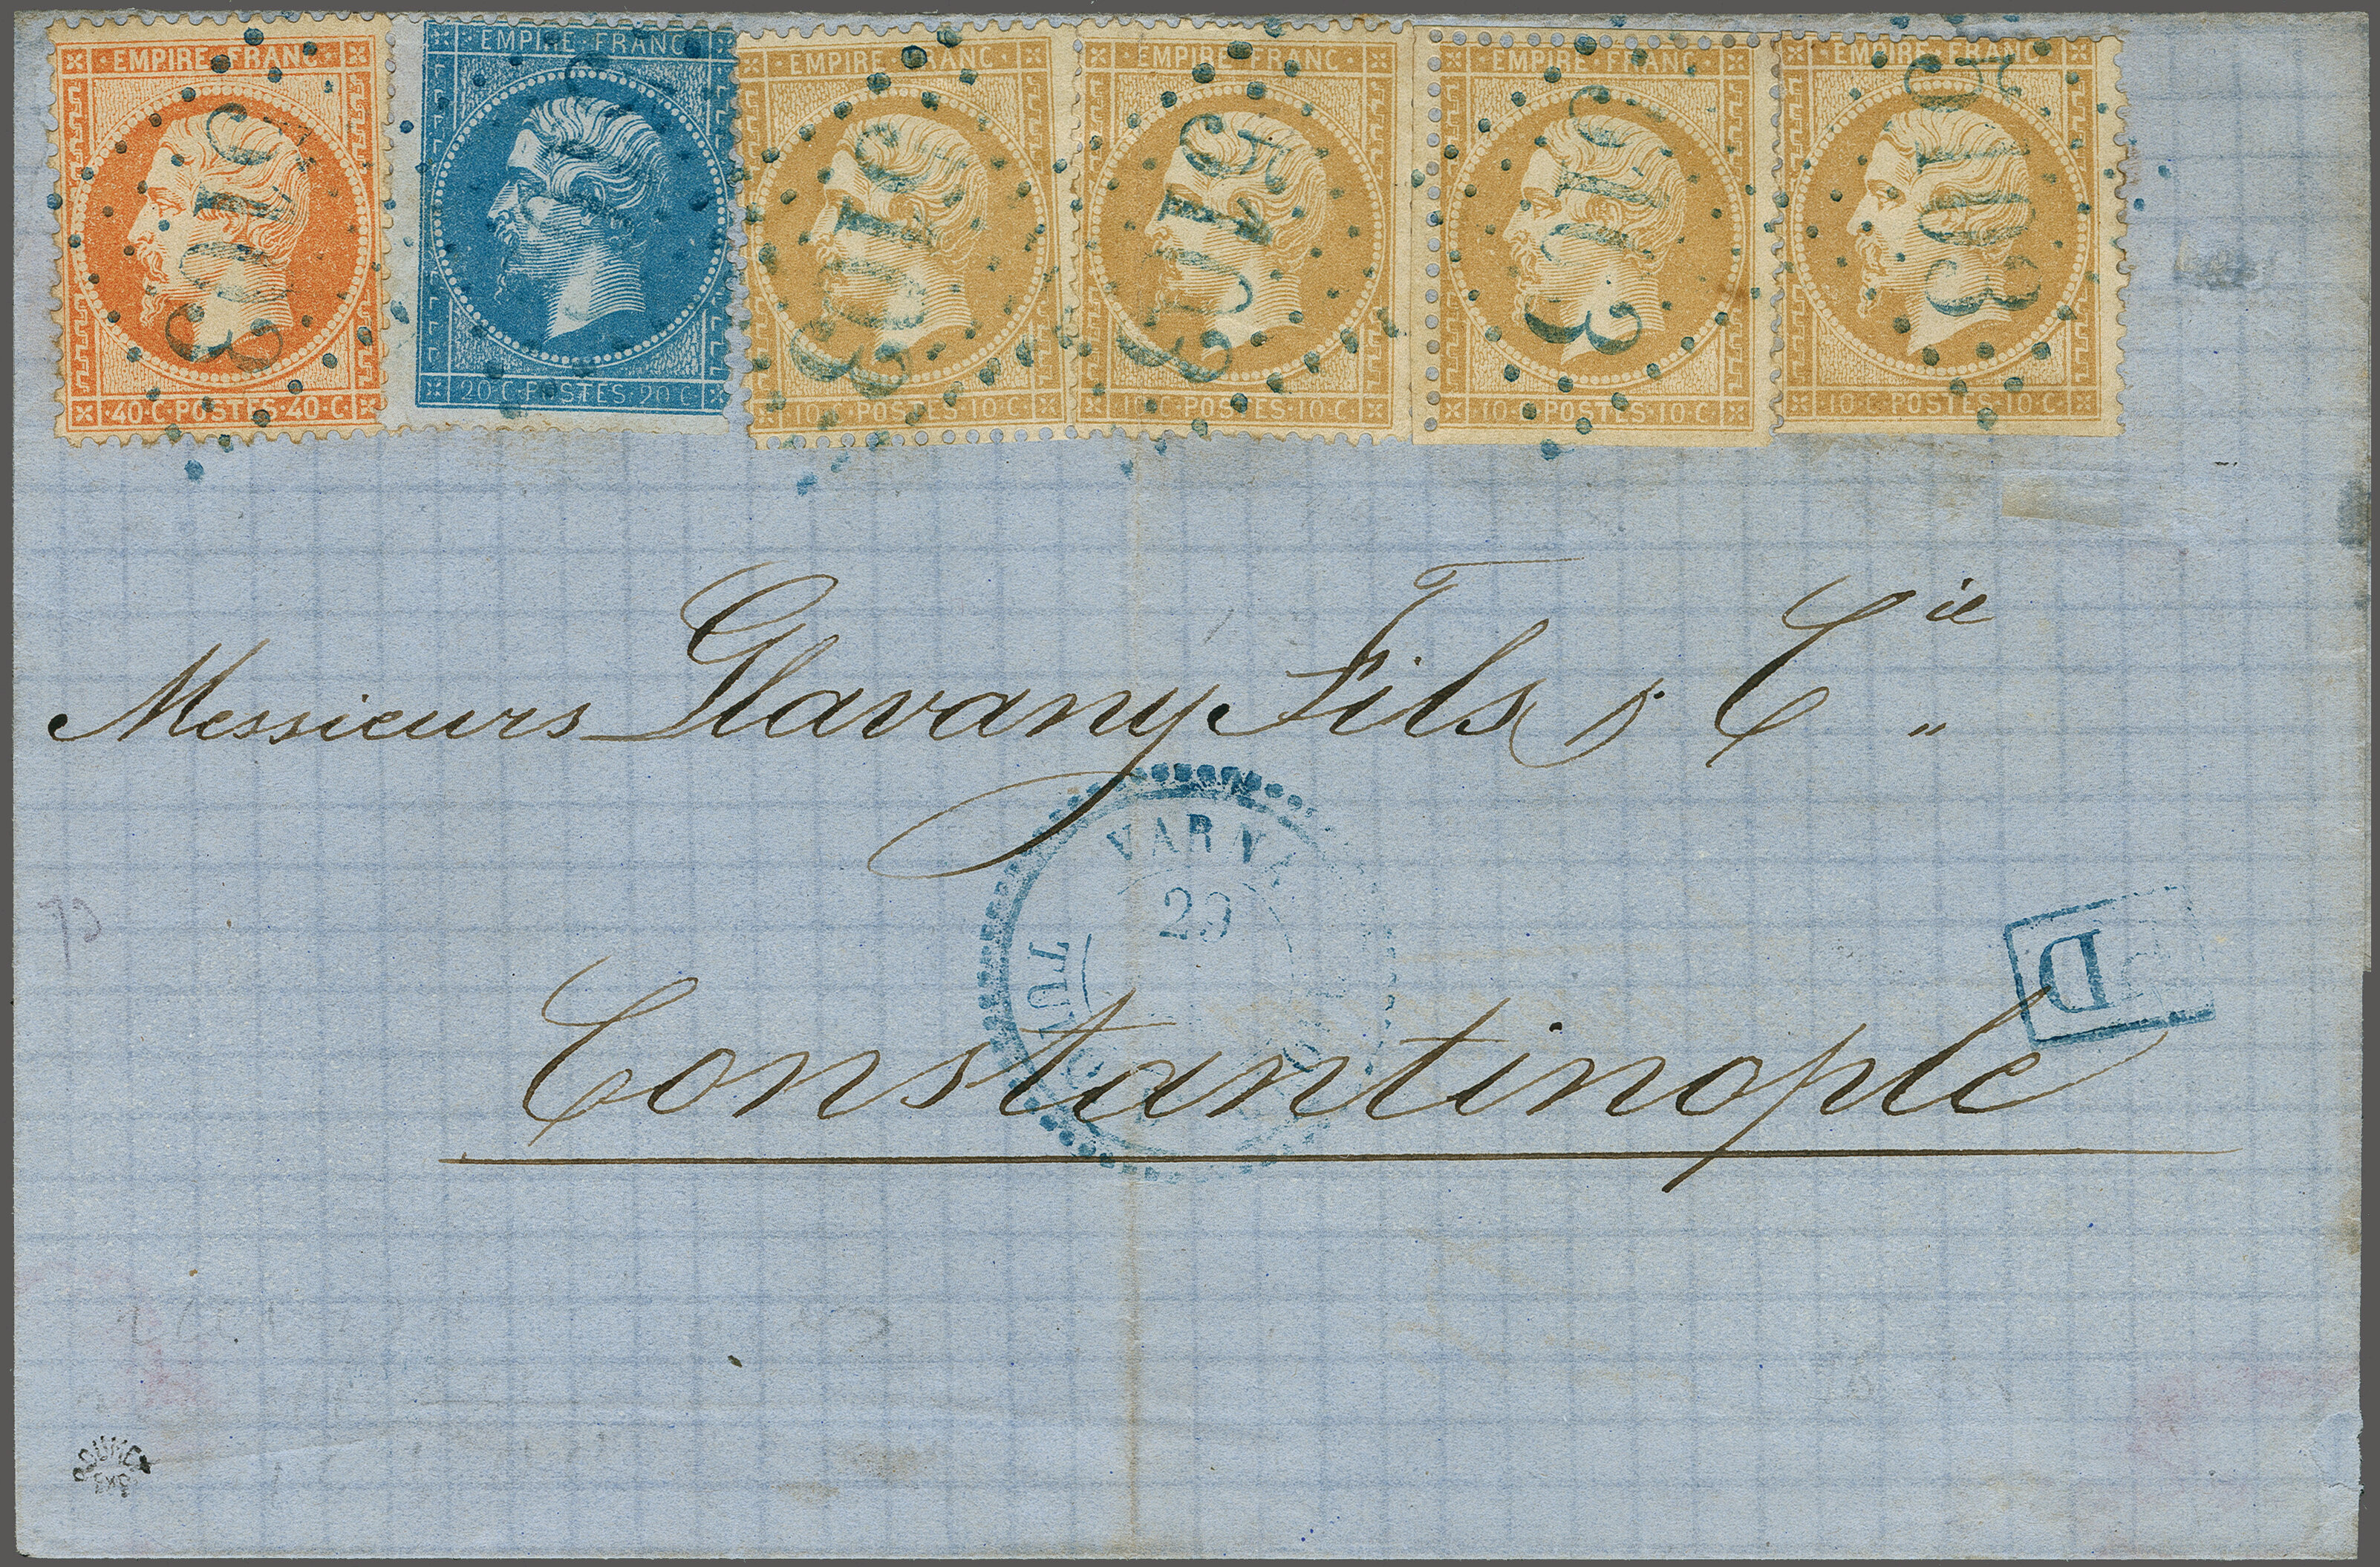 EMPIRE·FRANC·
40·C·POSTES·40·C·
5103
EMPIRE·FRANC
20·C·POSTES·20·C
EMPIRE FRANC
10·C·POSTES·10·C
5103
EMPIRE·FRANC·
POSTES·10·C
5103
EMPIRE·FRANC
10·C·POSTES·10·C
EMPIRE·FRANC
10·C·POSTES·10·C
5103
Messieurs Glavany Fils & Cie
VARNA
29
TUR
Constantinople
PD
73
ROUMET
EXP